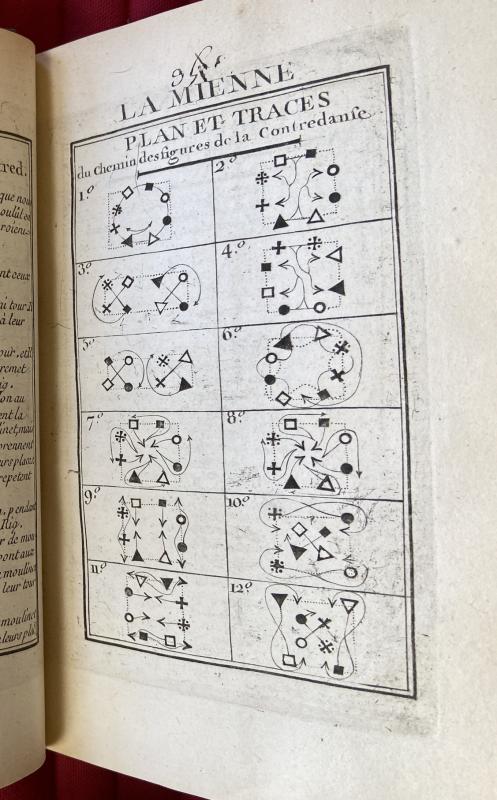 LA MIENNE
PLAN ET TRACES
du Chemin des figures de la Contredanse
1.º
2.º
3.º
4.º
5.º
6.º
7.º
8.º
9.º
10.º
11.º
12.º
red.
que nous
ont ceux
tour Il
à leur
our. et il
remet
ig.
on au
ent la
linet, mais
prennent
urs places
repetent
pendant
Fig.
r de mou
ont aux
moulinet
leur tour
moulinet
leurs pla